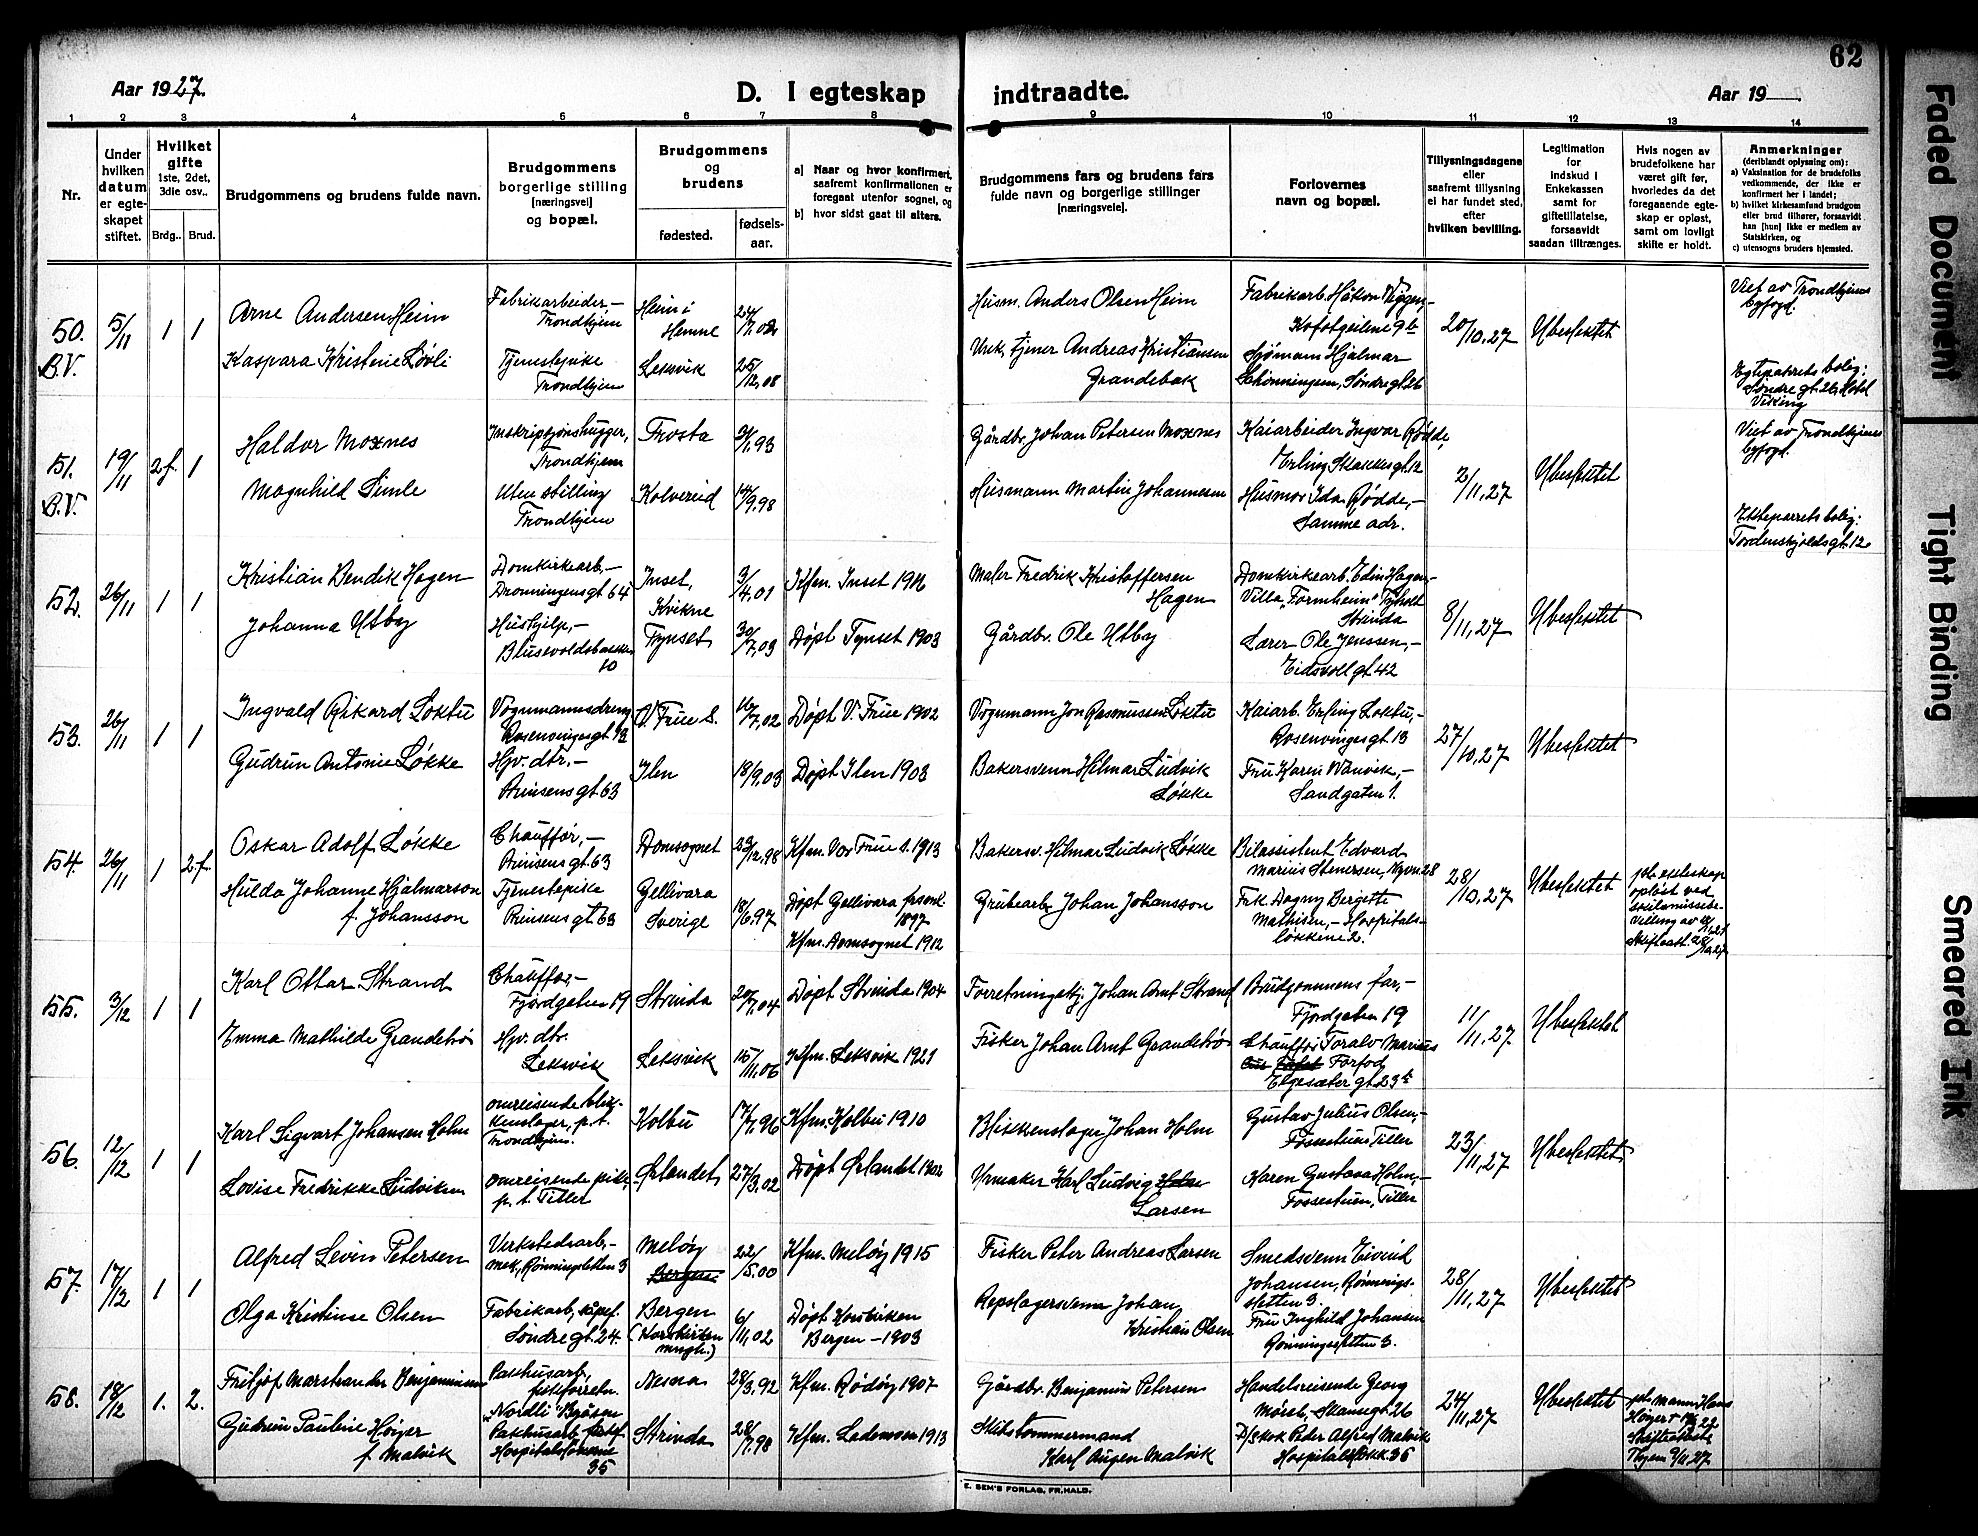 62
Aar 1927.
D. I egteskap
indtraadte.
Aar 19
1 2 3 4 5 6 7 8 9 10 11 12 13 14
Nr.
Under hvilken datum er egteskapet stiftet.
Hvilket gifte
1ste, 2det, 3die osv..
Brdg.. Brud.
Brudgommens og brudens fulde navn.
Brudgommens borgerlige stilling [næringsvei] og bopæl.
Brudgommens og brudens
fødested.
fødselsaar.
a) Naar og hvor konfirmert, saafremt konfirmationen er foregaat utenfor sognet, og
b) hvor sidst gaat til alters.
Brudgommens fars og brudens fars fulde navn og borgerlige stillinger [næringsveie].
Forlovernes navn og bopæl.
Tillysningsdagene eller saafremt tillysning ei har fundet sted, efter hvilken bevilling.
Legitimation for indskud i Enkekassen samt for giftetillatelse, forsaavidt saadan tiltrænges.
Hvis nogen av brudefolkene har været gift før, hvorledes da det foregaaende egteskap er opløst, samt om lovligt skifte er holdt.
Anmerkninger
(deriblandt oplysning om):
a) Vaksination for de brudefolks vedkommende, der ikke er konfirmert her i landet;
b) hvilket kirkesamfund brudgom eller brud tilhører, forsaavidt han [hun] ikke er medlem av Statskirken, og
c) utensogns bruders hjemsted.
50. B.V. 5/11 1 1
Arne Andersen Heim
Fabrikarbeider,- Trondhjem
Heim i Hemne
24/7.02
Husm. Anders Olsen Heim
Fabrikarb. Håkon Nyggen,- Kofotgeilene 9b
20/10.27
Ubeslektet
Viet av Trondhjems byfogd.
Kaspara Kristine Løvli
Tjenestepike Trondhjem
Leksvik
25/12.08
Vrek. tjener Andreas Kristiansen Grandebak
Sjømann Hjalmar Schønningsen, Søndregt. 26
Egteparrets bolig: Søndre gt. 26, Hotel Viking
51. B.V. 19/11 2.f. 1
Haldor Moxnes
Inskripsjonshugger, Trondhjem
Frosta
Gårdbr. Johan Petersen Moxnes
Kaiarbeider Ingvar Rødde, Erling Skakkes gt. 12
2/11.27
Ubeslektet
Viet av Trondhjems byfogd.
Magnhild Simle
Uten stilling Trondhjem
Kolvereid
14/9.98
Husmann Martin Johannesen
Husmor Ida Rødde,- Samme adr.
Ekteparrets bolig: Tordenskjoldsgt. 12
52. 26/11 1 1
Kristian Bendik Hagen
Domkirkearb,- Dronningensgt 64
Inset, Kvikne
3/4.01
Kfm. Inset 1916
Maler Fredrik Kristoffersen Hagen
Domkirkearb. Edin Hagen,- Villa "Formheim" Tyholt Strinda
8/11.27
Ubeslektet
Johanna Utby
Hushjelp,- Blusevoldsbakken 10
Tynset
30/7.03
Døpt Tynset 1903
Gårdbr. Ole Utby
Lærer Ole Jenssen,- Eidsvoll gt. 42
53. 26/11 1 1
Ingvald Rikard Løktu
Vognmannsdreng Rosenvingesgt 13
V. Frue S.
16/7.02
Døpt V. Frue 1902
Vognmann Jon Rasmussen Løktu
Kaiarb. Erling Løktu,- Rosenvingesgt 13
27/10.27
Ubeslektet
Gudrun Antonie Løkke
Hjv. dtr,- Prinsens gt. 63
Ilen
18/9.03
Døpt Ilen 1903
Bakersvenn Hilmar Ludvik Løkke
Fru Karen Wanvik,- Sandgaten 1.
54. 26/11 1 2.f.
Oskar Adolf Løkke
Chauffør,- Prinsens gt. 63
Domsognet
23/12.98
Kfm. Vor Frue S. 1913
Bakersv. Hilmar Ludvik Løkke
Bilassistent Edvard Marius Stenersen,
28/10.27
Ubeslektet
Hulda Johanne Hjalmarson f. Johansson
Tjenestepike Prinsens gt 63
Gellivara Sverige
18/6.97
Døpt Gellivara 1897
Kfm. Domsognet 1912
Grubearb. Johan Johansson
Frk. Dagny Bergitte Mathisen,- Hospitalsløkkene 2.
55. 3/12 1 1
Karl Ottar Strand
Chauffør,- Fjordgaten 19
Strinda
20/7.04
Døpt Strinda 1904
Forretningsbj. Johan Arnt Strand
Brudgommens far,- Fjordgaten 19
11/11.27
Ubeslektet
Emma Mathilde Grandetrø
Hjv. dtr. Leksvik
Leksvik
15/11.06
Kfm. Leksvik 1921
Fisker Johan Arnt Grandetrø
Chauffør Toralv Marius Forfod Elgesæter gt. 23b
56. 12/12 1 1
Karl Sigvart Johansen Holm
omreisende blikkenslager, p.t. Trondhjem.
Kolbu
17/7.96
Kfm. Kolbu 1910
Blikkenslager Johan Holm
Gustav Julius Olsen,- Fossestuen Tiller
23/11.27
Ubeslektet
Lovise Fredrikke Ludviksen
omreisende pike, p.t. Tiller
Ørlandet
27/3.02
Døpt Ørlandet 1902
Urmaker Karl Ludvig Larsen
Karen Gustava Holm,- Fossestuen, Tiller
57. 17/12 1 1
Alfred Levin Petersen
Verkstedsarb,- mek, Rønningsletten 3
Meløy
Bergen
22/5.00
Kfm. Meløy 1915
Fisker Peter Andreas Larsen
Smedsvenn Eivind Johansen, Rønningsletten 3.
28/11.27
Ubeslektet
Olga Kristine Olsen
Fabrikarb, Søndre gt. 24.
Bergen (Korskirken mngh.)
6/11.02
Døpt Korskirken Bergen - 1903
Repslagersvenn Johan Kristian Olsen
Fru Inghild Johansen Rønningsletten 3.
58. 18/12 1. 2.
Fritjof Marstrander Benjaminsen
Pakhusarb, "Nordli" Byåsen
Nesna
28/3.92
Kfm. Rødøy 1907
Gårdbr. Benjamin Petersen
Handelsreisende Georg Skansegt 26
24/11.27
Ubeslektet
Gudrun Pauline Høyer f. Malvik
Pakhusarb. Hospitalsløkkene 35
Strinda
28/7.98
Kfm. Lademoen 1913
Skibstømmermand Karl Augen Malvik
D/skok Peder Alfred Malvik Hospitalsløkk. 35
E. SEM'S FORLAG, FR.HALD.
Faded Document
Tight Binding
Smeared Ink